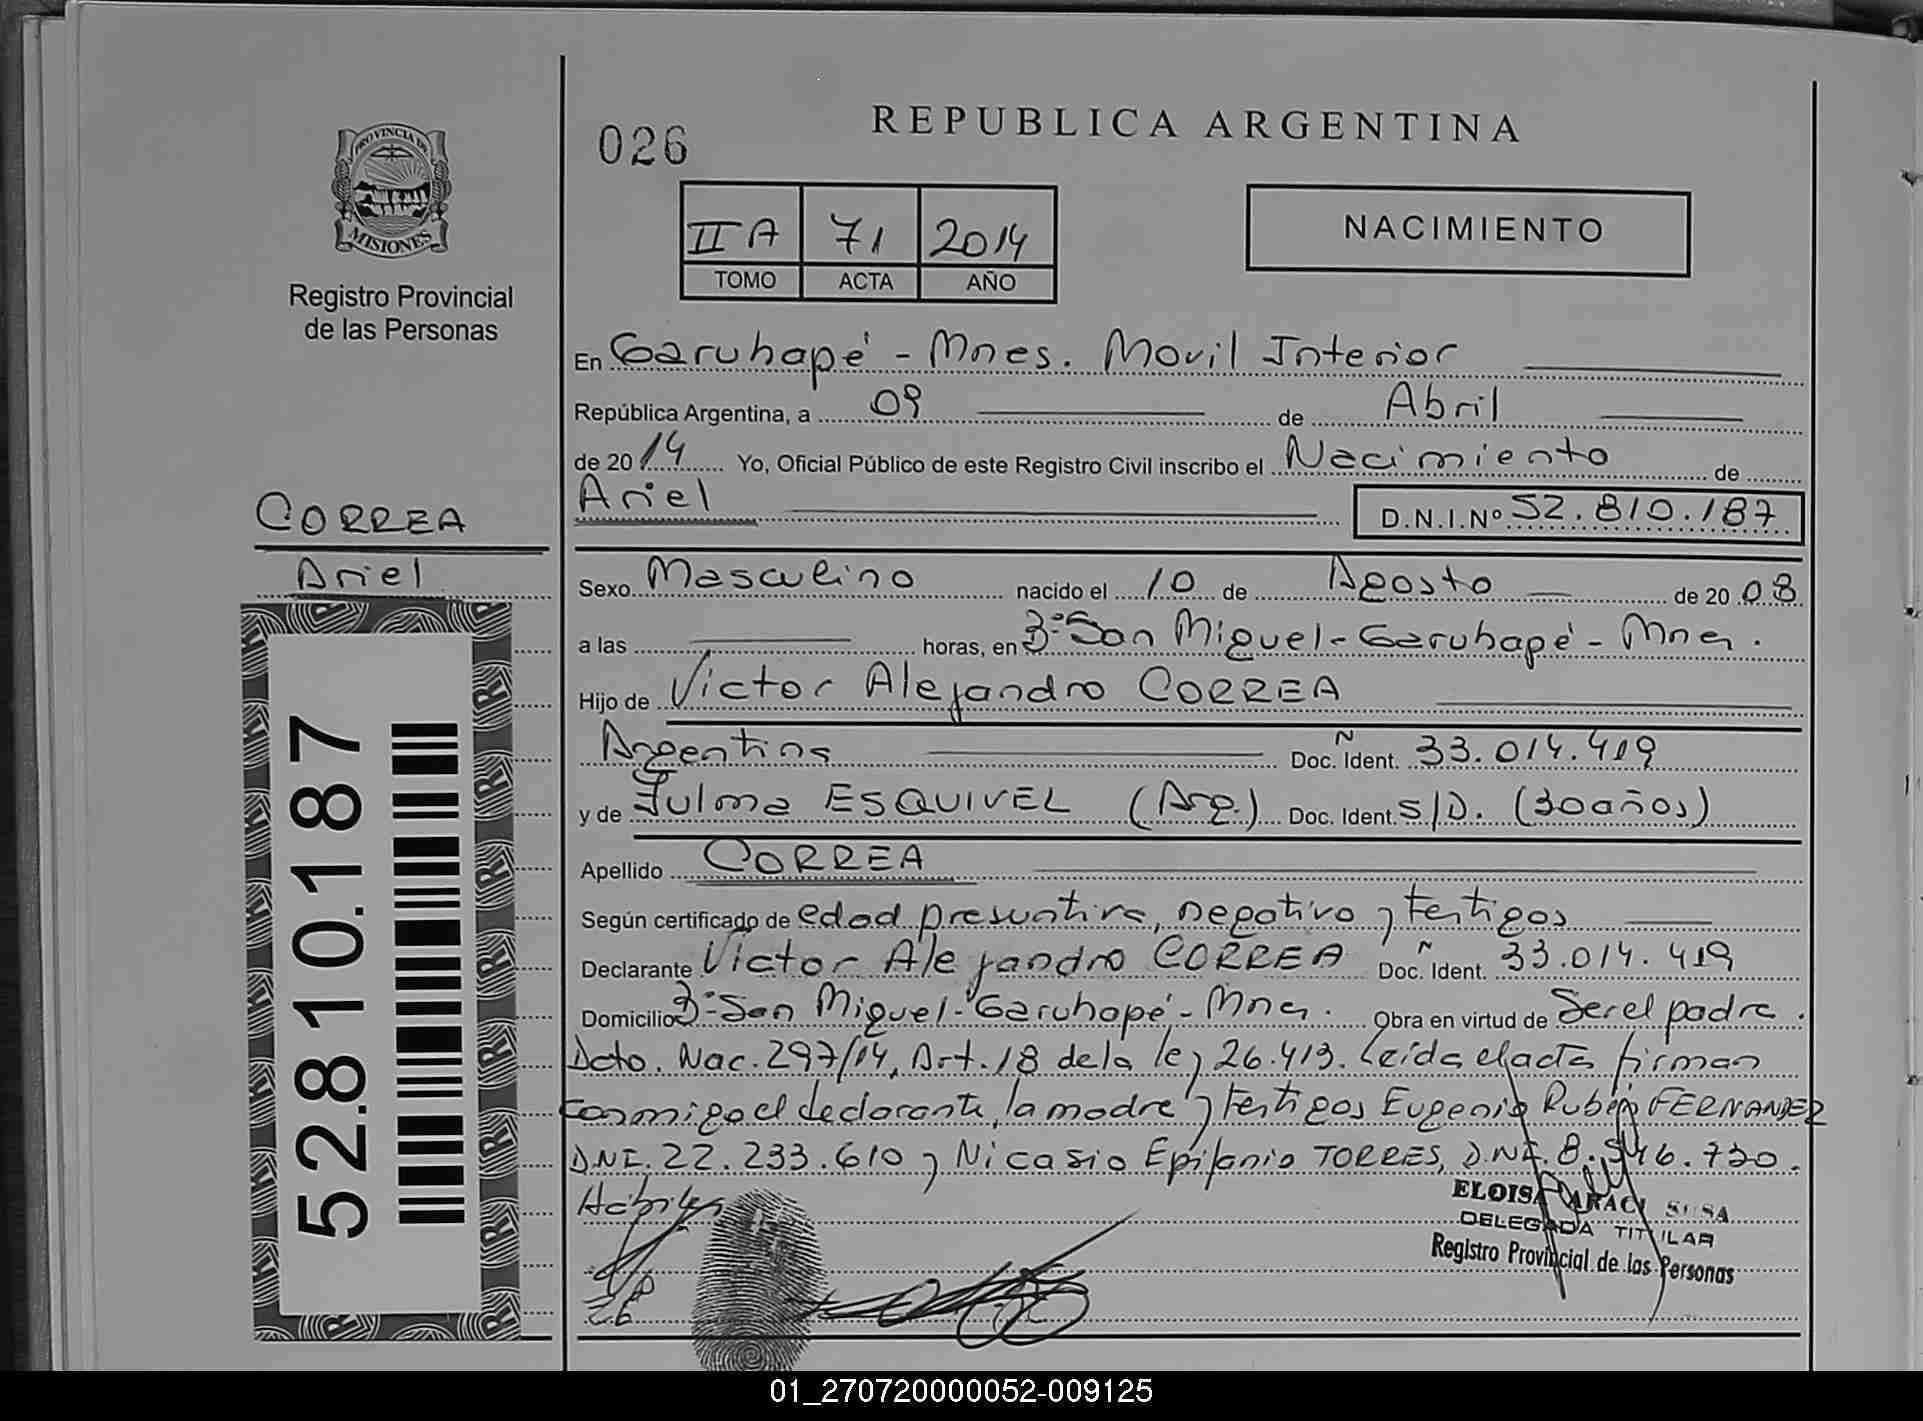 REPUBLICA ARGENTINA
026
PROVINCIA DE
MISIONES
Registro Provincial
de las Personas
II A 71 2014
TOMO ACTA AÑO
NACIMIENTO
En Garuhapé - Mnes. Movil Interior
República Argentina, a 09 de Abril
de 2014 Yo, Oficial Público de este Registro Civil inscribo el Nacimiento de
Ariel D.N.I.Nº 52.810.187
CORREA
Ariel
Sexo Masculino nacido el 10 de Agosto de 2008
a las horas, en Bº San Miguel - Garuhapé - Mnes.
Hijo de Victor Alejandro CORREA
Argentina Doc. Ñ Ident. 33.014.419
y de Julma ESQUIVEL (Arg.) Doc. Ident. S/D. (30 años)
Apellido CORREA
Según certificado de edad presuntiva, negativo y testigos
Declarante Victor Alejandro CORREA Doc. Ñ Ident. 33.014.419
Domicilio Bº San Miguel - Garuhapé - Mnes. Obra en virtud de Ser el padre.
Dcto. Nac. 297/14, Art. 18 de la ley 26.413. Leída el acta firman
conmigo el declarante, la madre y testigos Eugenio Rubén FERNANDEZ
DNI. 22.233.610 y Nicasio Epifanio TORRES, D.N.I. 8.546.730.
Hábiles
ELOISA ARACI SOSA
DELEGADA TITULAR
Registro Provincial de las Personas
52.810.187
01_270720000052-009125